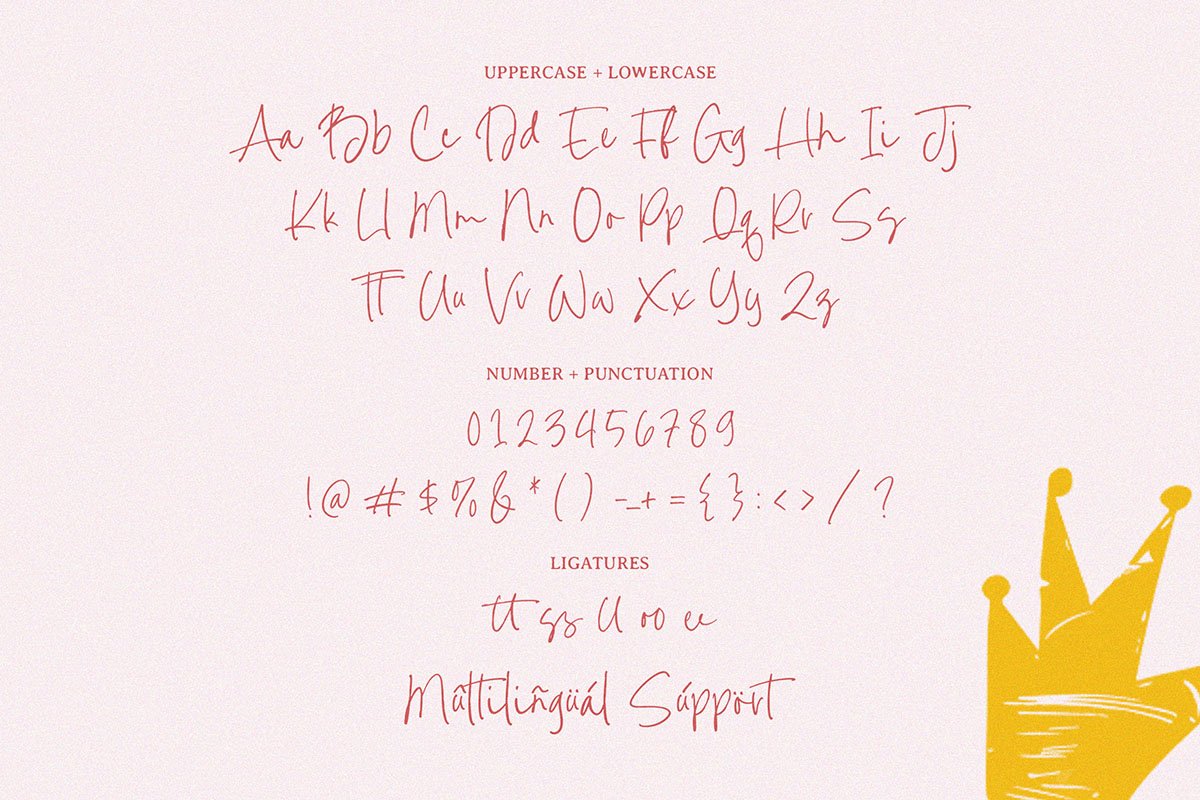 UPPERCASE + LOWERCASE
Aa Bb Cc Dd Ee Ff Gg Hh Ii Jj
Kk Ll Mm Nn Oo Pp Qq Rr Ss
Tt Uu Vv Ww Xx Yy Zz
NUMBER + PUNCTUATION
0123456789
!@ # $ % & * ( ) -_+ = { } : < > / ?
LIGATURES
tt ss ll oo ee
Mûltilingüál Súppört